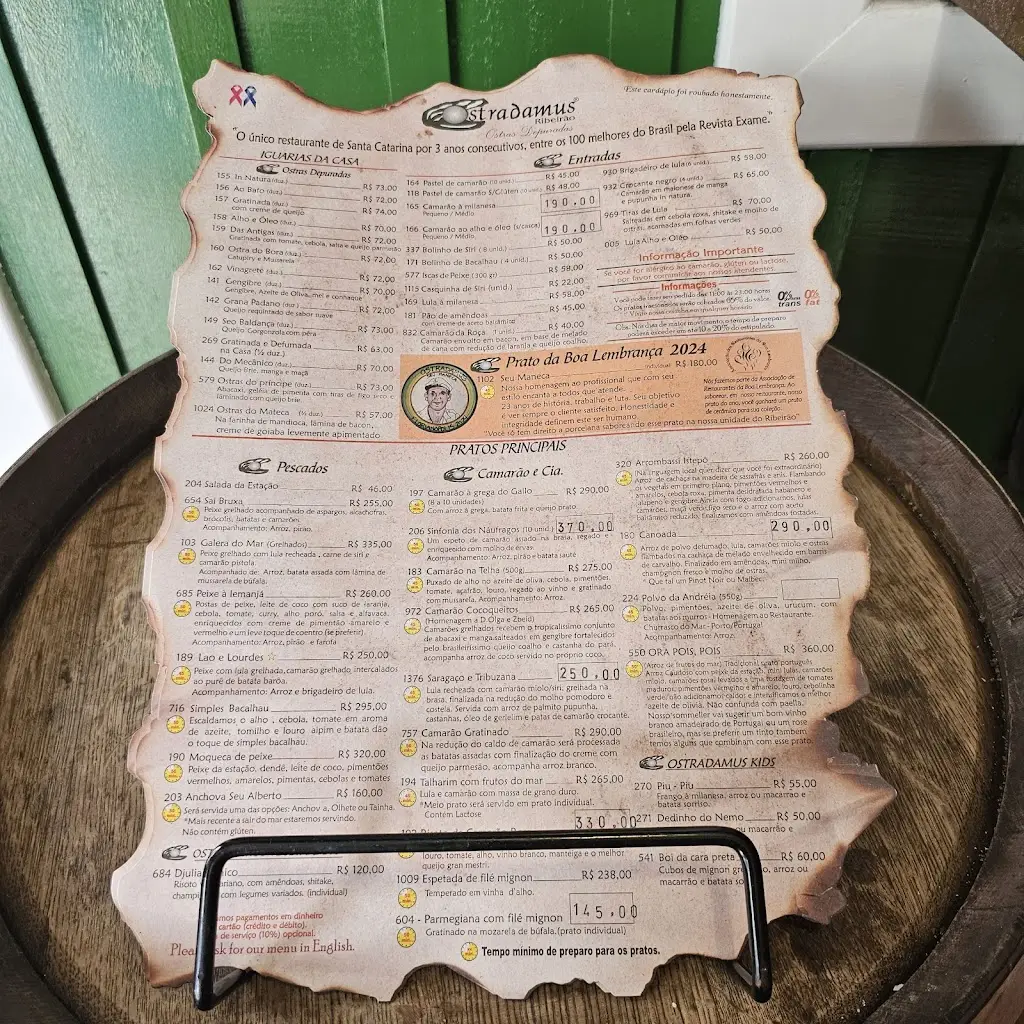 Este cardápio foi roubado honestamente.
Ostradamus
Ribeirão
Ostras Depuradas
"O único restaurante de Santa Catarina por 3 anos consecutivos, entre os 100 melhores do Brasil pela Revista Exame."
IGUARIAS DA CASA
Ostras Depuradas
155 In Natura (duz.) R$ 73,00
156 Ao Bafo (duz.) R$ 72,00
157 Gratinada (duz.) R$ 74,00
com creme de queijo
158 Alho e Óleo (duz.) R$ 70,00
159 Das Antigas (duz.) R$ 72,00
Gratinada com tomate, cebola, salsa e queijo parmesão
160 Ostra do Bora (duz.) R$ 72,00
Catupiry e Mussarela
162 Vinagrete (duz.) R$ 72,00
141 Gengibre (duz.) R$ 70,00
Gengibre, Azeite de Oliva, mel e conhaque
142 Grana Padano (duz.) R$ 72,00
Queijo requintado de sabor suave
149 Seo Baldança (duz.) R$ 73,00
Queijo Gorgonzola com pêra
269 Gratinada e Defumada R$ 63,00
na Casa (½ duz.)
144 Do Mecânico (duz.) R$ 70,00
Queijo brie, manga e maçã
579 Ostras do príncipe (duz.) R$ 73,00
Abacaxi, geléia de pimenta com tiras de figo seco e
laminado com queijo brie.
1024 Ostras do Mateca (½ duz.) R$ 57,00
Na farinha de mandioca, lâmina de bacon,
creme de goiaba levemente apimentado
Entradas
164 Pastel de camarão (10 unid.) R$ 45,00
118 Pastel de camarão S/Glúten R$ 48,00
165 Camarão à milanesa 190,00
Pequeno / Médio
166 Camarão ao alho e óleo (s/casca) 190,00
Pequeno / Médio
337 Bolinho de Siri (8 unid.) R$ 50,00
171 Bolinho de Bacalhau (4 unid.) R$ 50,00
577 Iscas de Peixe (300 gr) R$ 58,00
1115 Casquinha de Siri (unid.) R$ 22,00
169 Lula à milanesa R$ 58,00
181 Pão de amêndoas R$ 45,00
com creme de aceto balsâmico
832 Camarão da Roça R$ 40,00
Camarão envolto em bacon, em base de melado
de cana com redução de laranja e queijo coalho.
930 Brigadeiro de lula (6 unid.) R$ 58,00
932 Crocante negro (4 unid.) R$ 65,00
Camarão em maionese de manga
e pupunha in natura.
969 Tiras de Lula R$ 70,00
Salteadas em cebola roxa, shitake e molho de
ostras, acamadas em folhas verdes
005 Lula Alho e Óleo R$ 50,00
Informação Importante
Se você for alérgico ao camarão, glúten ou lactose,
por favor comunique aos nossos atendentes.
Informações
Você pode fazer seu pedido das 11:00 às 23:00 horas
Os pratos fracionados serão cobrados 65% do valor.
Visite nossa cozinha em qualquer horário.
0% trans 0% fat
Obs. Nos dias de maior movimento o tempo de preparo
poderá exceder em até 10 a 20% do estipulado.
Prato da Boa Lembrança 2024
1102 Seu Maneca Individual R$ 180,00
Nossa homenagem ao profissional que com seu
estilo encanta a todos que atende.
23 anos de história, trabalho e luta. Seu objetivo
é ver sempre o cliente satisfeito. Honestidade e
integridade definem este ser humano.
"Você só tem direito a porcelana saboreando esse prato na nossa unidade do Ribeirão"
Nós fazemos parte da Associação de
Restaurantes da Boa Lembrança. Ao
saborear, em nosso restaurante, nosso
prato do ano, você ganhará um prato
de cerâmica para sua coleção.
PRATOS PRINCIPAIS
Pescados
204 Salada da Estação R$ 46,00
654 Sai Bruxa R$ 255,00
Peixe grelhado acompanhado de aspargos, alcachofras,
brócolis, batatas e camarões.
Acompanhamento: Arroz, pirão.
103 Galera do Mar (Grelhados) R$ 335,00
Peixe grelhado com lula recheada, carne de siri e
camarão pistola
Acompanhado de: Arroz, batata assada com lâmina de
mussarela de búfala.
685 Peixe à Iemanjá R$ 260,00
Postas de peixe, leite de coco com suco de laranja,
cebola, tomate, curry, alho poró, salsa e alfavaca,
enriquecidos com creme de pimentão amarelo e
vermelho e um leve toque de coentro (se preferir)
Acompanhamento: Arroz, pirão e farofa
189 Lao e Lourdes R$ 250,00
Peixe com lula grelhada, camarão grelhado intercalados
ao purê de batata baroa.
Acompanhamento: Arroz e brigadeiro de lula.
716 Simples Bacalhau R$ 295,00
Escaldamos o alho, cebola, tomate em aroma
de azeite, tomilho e louro aipim e batata dão
o toque de simples bacalhau.
190 Moqueca de peixe R$ 320,00
Peixe da estação, dendê, leite de coco, pimentões
vermelhos, amarelos, pimentas, cebolas e tomates
203 Anchova Seu Alberto R$ 160,00
Será servida uma das opções: Anchova, Olhete ou Tainha.
*Mais recente a sair do mar estaremos servindo.
Não contém glúten.
OST
684 Djulia ico R$ 120,00
Risoto ariano, com amêndoas, shitake,
champi com legumes variados. (individual)
mos pagamentos em dinheiro
cartão (crédito e débito).
de serviço (10%) opcional.
Please ask for our menu in English.
Camarão e Cia.
197 Camarão à grega do Gailo R$ 290,00
(8 a 10 unidades)
Com arroz à grega, batata frita e queijo prato
206 Sinfonia dos Náufragos (10 unid.) 370,00
Um espeto de camarão assado na brasa, regado e
enriquecido com molho de ervas
Acompanhamento: Arroz, pirão e batata sauté
183 Camarão na Telha (500g) R$ 275,00
Puxado de alho no azeite de oliva, cebola, pimentões,
tomate, açafrão, louro, regado ao vinho e gratinado
com mussarela. Acompanhamento: Arroz.
972 Camarão Cocoqueitos R$ 265,00
(Homenagem a D.Olga e Zbeid)
Camarões grelhados recebem o tropicalíssimo conjunto
de abacaxi e manga salteados em gengibre fortalecidos
pelo brasileiríssimo queijo coalho e castanha do pará.
acompanha arroz de coco servido no próprio coco.
1376 Saragaço e Tribuzana 250,00
Lula recheada com camarão miolo/siri, grelhada na
brasa, finalizada na redução do molho pomodoro e
costela. Servida com arroz de palmito pupunha,
castanhas, óleo de gergelim e patas de camarão crocante.
757 Camarão Gratinado R$ 290,00
Na redução do caldo de camarão será processado
as batatas assadas com finalização do creme com
queijo parmesão, acompanha arroz branco.
194 Talharim com frutos do mar R$ 265,00
Lula e camarão com massa de grano duro.
*Meio prato será servido em prato individual.
Contém Lactose
330,00
louro, tomate, alho, vinho branco, manteiga e o melhor
queijo gran mestri.
1009 Espetada de filé mignon R$ 238,00
Temperado em vinha d'alho.
604 - Parmegiana com filé mignon 145,00
Gratinado na mozarela de búfala.(prato individual)
Tempo mínimo de preparo para os pratos.
320 Arrombassi Istepô R$ 260,00
(Na linguagem local quer dizer que você foi extraordinário)
Arroz de cachaça na madeira de sassafrás e anis. Flambando
os vegetais em primeiro plano, pimentões vermelhos e
amarelos, cebola roxa, pimenta desidratada habanero e
jalapeno e gengibre. Ainda com fogo adicionamos, lulas,
camarões, maçã verde, figo seco e o arroz com aceto
balsâmico reduzido. Finalizamos com amêndoas tostadas.
180 Canoada 290,00
Arroz de polvo defumado, lula, camarões miolo e ostras
flambados na cachaça de melado envelhecido em barris
de carvalho. Finalizado em amêndoas, mini milho,
champignon fresco e molho de ostras.
* Que tal um Pinot Noir ou Malbec.
224 Polvo da Andréia (550g)
Polvo, pimentões, azeite de oliva, urucum, com
batatas aos murros- Homenagem ao Restaurante
Churrasco do Mar- Porto/Portugal
Acompanhamento: Arroz
550 ORA POIS, POIS R$ 360,00
(Arroz de frutos do mar). Tradicional prato português
Arroz Caudoso com peixe da estação, mini lulas, camarões
miolo, camarões rosa levados a uma tostagem de tomates
maduros, pimentões vermelho e amarelo, louro, cebolinha
verde, são adicionados caldos e intensificamos o melhor
azeite de oliva. Não confunda com paella.
Nosso sommelier vai sugerir um bom vinho
branco amadeirado de Portugal ou um rose
brasileiro, mas se preferir um tinto também
temos alguns que combinam com esse prato
OSTRADAMUS KIDS
270 Piu - Piu R$ 55,00
Frango à milanesa, arroz ou macarrão e
batata sorriso.
271 Dedinho do Nemo R$ 50,00
ou macarrão e
541 Boi da cara preta R$ 60,00
Cubos de mignon gre , arroz ou
macarrão e batata so